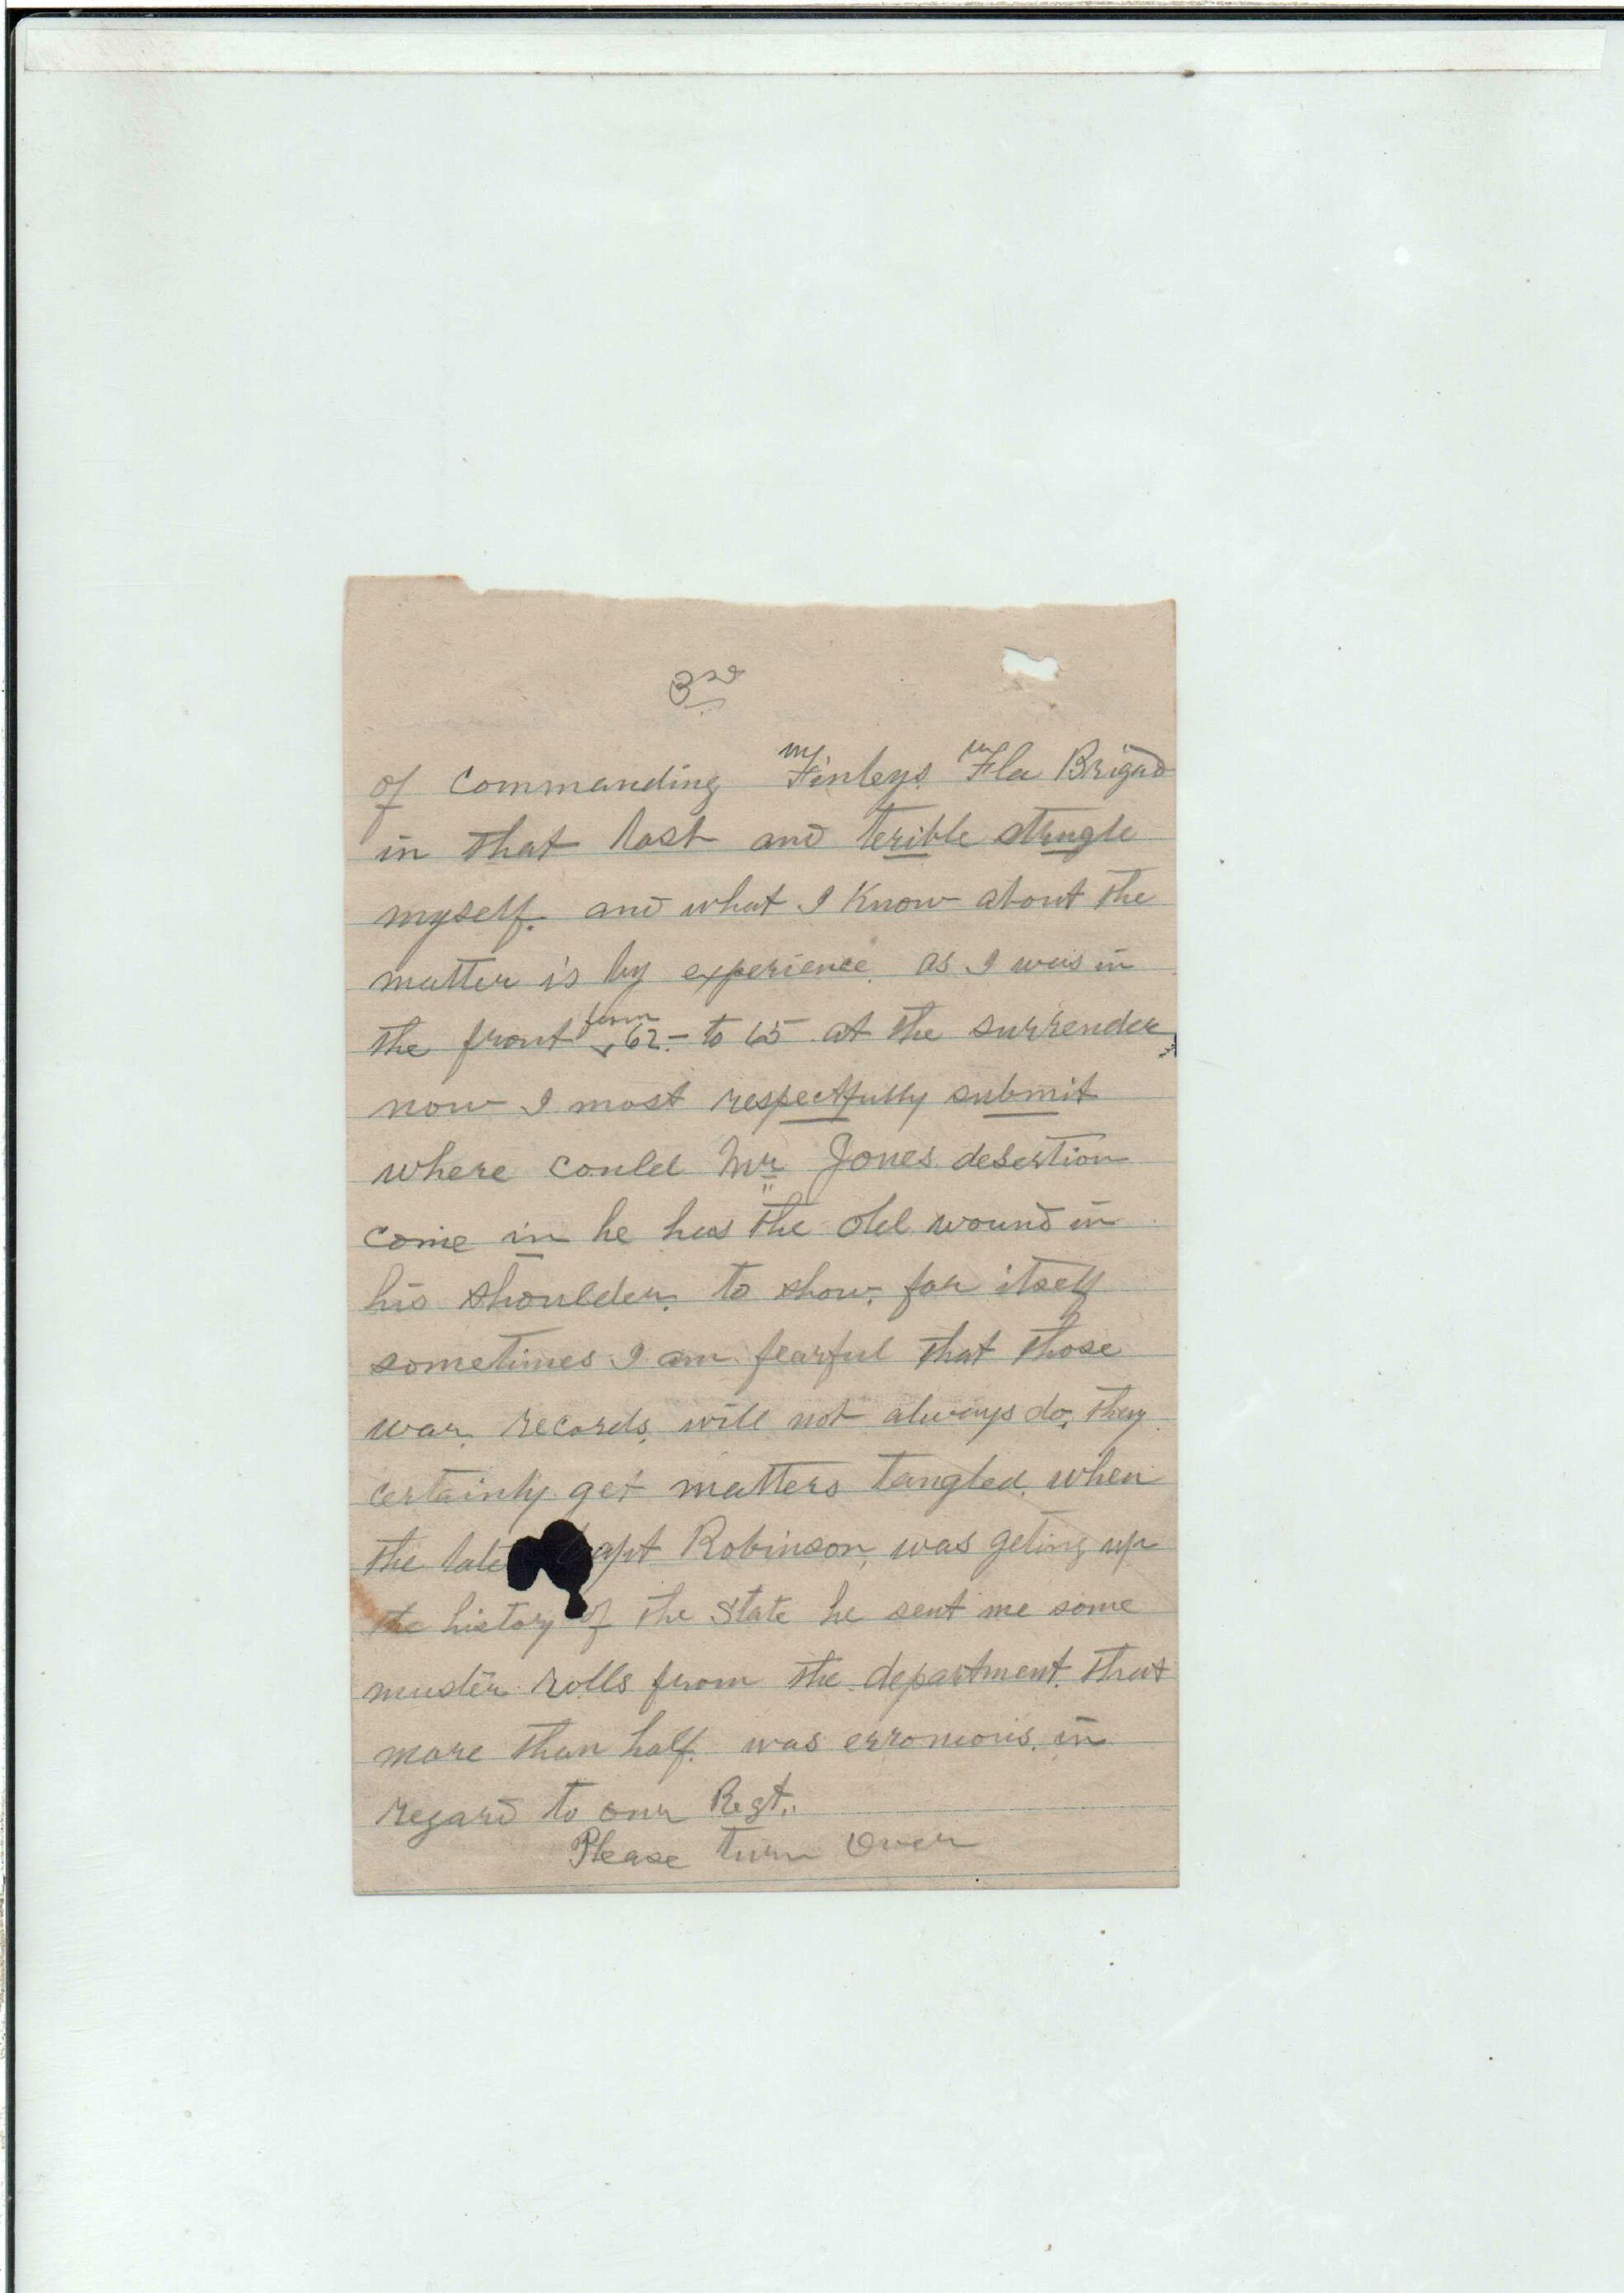 3rd
of commanding Finleys Fla Brigad
in that last and terible strugle
myself. and what I know about the
matter is by experience. as I was in
the front from 62. - to 65 at the surrender
now I most respectfully submit
where could Mr Jones desertion
come in he has the old wound in
his shoulder. to show. for itself
sometimes I am fearful that those
war. records. will not always do. they
certainly get matters tangled. when
the late Capt Robinson, was geting up
the history of the State he sent me some
muster rolls from the department. that
more than half. was erronious. in
regard to our Regt..
Please turn Over